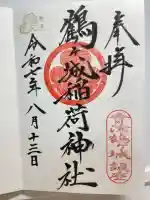 奉拝
鶴ヶ城稲荷神社
令和七年八月十三日